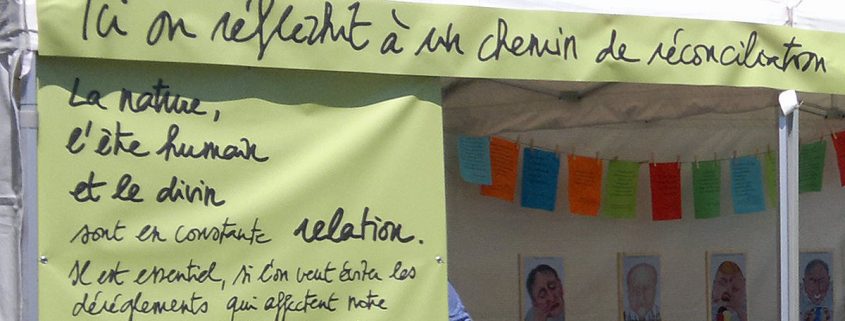 Ici on réfléchit à un chemin de réconciliation
La nature,
l'être humain
et le divin
sont en constante relation.
Il est essentiel, si l'on veut éviter les
dérèglements qui affectent notre